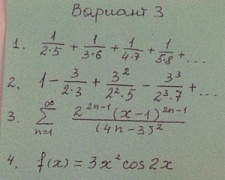 Вариант 3
1. 1/(2·5) + 1/(3·6) + 1/(4·7) + 1/(5·8) + ...
2. 1 - 3/(2·3) + 3²/(2²·5) - 3³/(2³·7) + ...
3. ∞ ∑ n=1 2^(2n-1)(x-1)^(2n-1)/(4n-3)²
4. f(x) = 3x² cos 2x